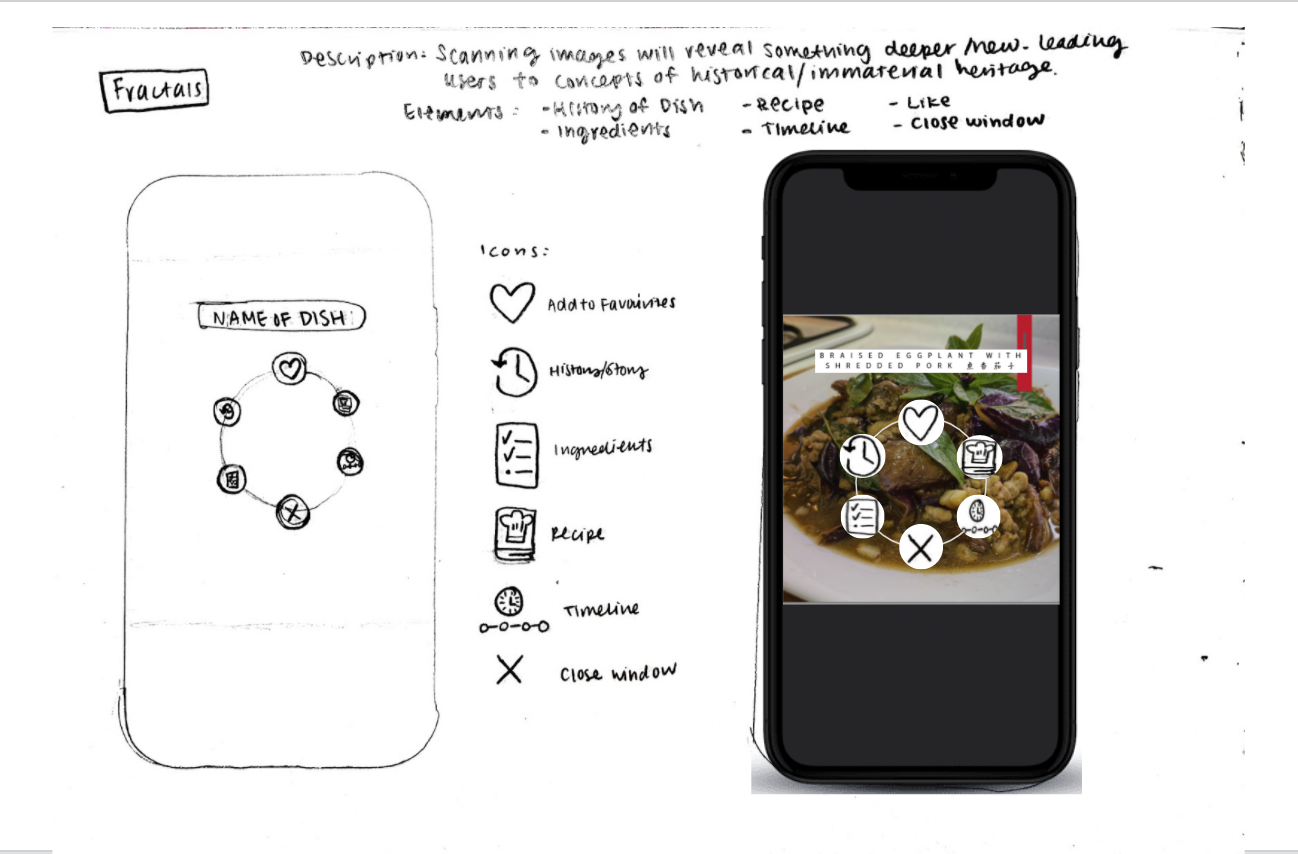 Fractals
Description: Scanning images will reveal something deeper/new - leading
users to concepts of historical/immaterial heritage.
Elements: - History of Dish - Recipe - Like
- Ingredients - Timeline - Close window
NAME OF DISH
Icons:
Add to Favourites
History/Story
Ingredients
Recipe
Timeline
Close window
BRAISED EGGPLANT WITH
SHREDDED PORK 鱼香茄子